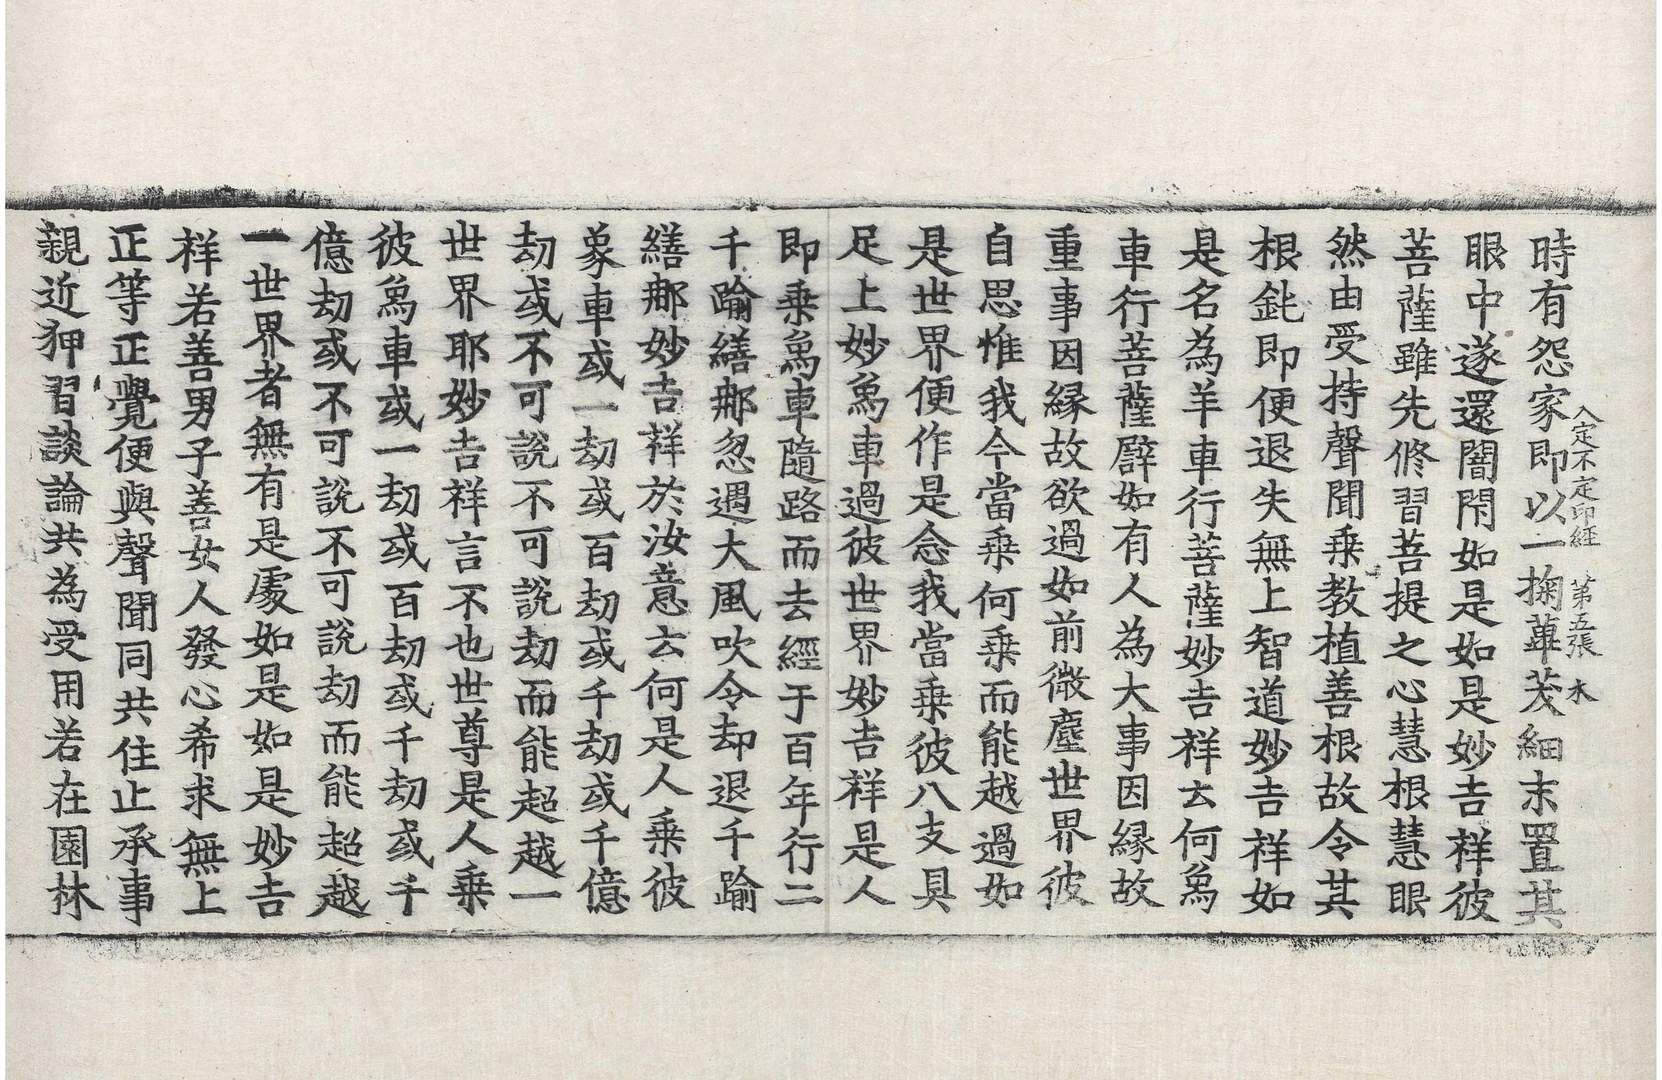 入定不定印経　第五張　木
時有怨家即以一掬蓽茇細末置其
眼中遂還闇閇如是如是妙吉祥彼
菩薩雖先修習菩提之心慧根慧眼
然由受持聲聞乗教植善根故令其
根鈍即便退失無上智道妙吉祥如
是名為羊車行菩薩妙吉祥云何象
車行菩薩辟如有人為大事因縁故
重事因縁故欲過如前微塵世界彼
自思惟我今當乗何乗而能越過如
是世界便作是念我當乗彼八支具
足上妙象車過彼世界妙吉祥是人
即乗象車隨路而去經于百年行二
千踰繕那忽遇大風吹令却退千踰
繕那妙吉祥於汝意云何是人乗彼
象車或一劫或百劫或千劫或千億
劫或不可說不可說劫而能超越一
世界耶妙吉祥言不也世尊是人乗
彼象車或一劫或百劫或千劫或千
億劫或不可說不可說劫而能超越
一世界者無有是處如是如是妙吉
祥若善男子善女人發心希求無上
正等正覺便與聲聞同共住止承事
親近狎習談論共為受用若在園林